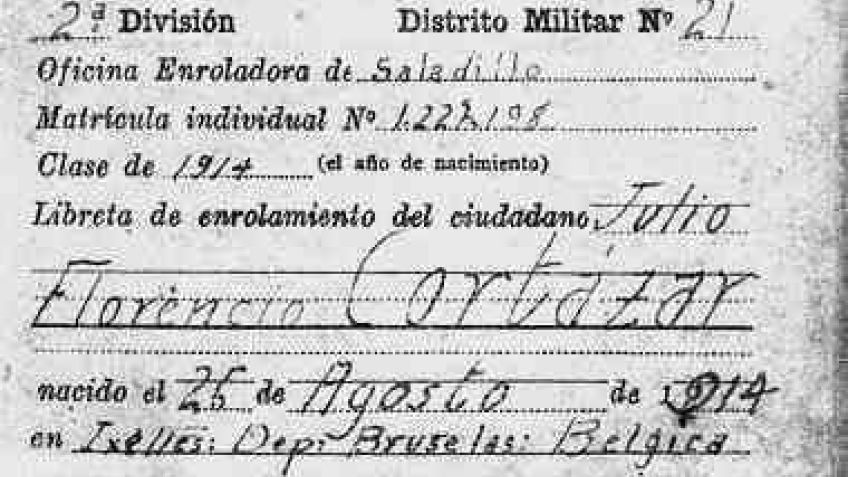 2ª División Distrito Militar Nº 21
Oficina Enroladora de Saladillo
Matrícula individual Nº
Clase de 1914 (el año de nacimiento)
Libreta de enrolamiento del ciudadano Julio
Florencio Cortázar
nacido el 26 de Agosto de 1914
en Ixelles: Dep: Bruselas: Belgica